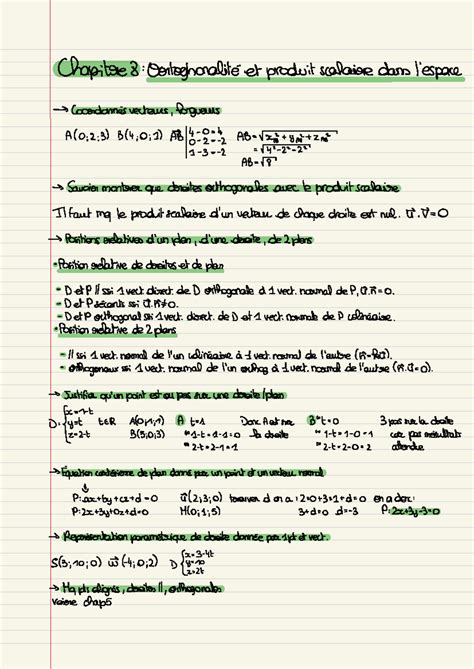 Chapitre 8: Orthogonalité et produit scalaire dans l'espace
→ Coordonnées vecteurs, longueurs
A(0;2;3) B(4;0;1) AB | 4-0=4 AB=√x²+y²+z²
0-2=-2 =√4²-2²-2²
1-3=-2 AB=√8
→ Savoir montrer que droites orthogonales avec le produit scalaire
Il faut mq le produit scalaire d'un vecteur de chaque droite est nul. u.v=0
→ Positions relatives d'un plan, d'une droite, de 2 plans
• Position relative de droites et de plan
- D et P // ssi 1 vect. direct. de D orthogonale à 1 vect. normal de P, u.n=0.
- D et P sécants ssi u.n≠0.
- D et P orthogonal ssi 1 vect. direct. de D et 1 vect. normale de P colinéaire.
• Position relative de 2 plans
- // ssi 1 vect. normal de l'un colinéaire à 1 vect. normal de l'autre
- orthogonaux ssi 1 vect. normal de l'un orthog à 1 vect. normal de l'autre
→ Justifier qu'un point est ou pas sur une droite/plan
D: { x=1-t A(0;1;1) A t=1 Donc A est sur B *t=0 B pas sur la droite
y=t t∈R B(5;0;3) *1-t=1-1=0 la droite *1-t=1-0=1 car pas résultats
z=2-t *2-t=2-1=1 *2-t=2-0=2 attendu
→ Equation cartésienne de plan donné par un point et un vecteur normal
P: ax+by+cz+d=0 u(2;3;0) d on a: 2×0+3×1+d=0 on a donc:
P: 2x+3y+0z+d=0 M(0;1;5) 3+d=0 d=-3 P: 2x+3y-3=0
→ Représentation paramétrique de droite donnée par 1 pt et vect.
S(3;10;0) w(-4;0;2) D { x=3-4t
y=10
z=2t
→ Mq pts alignés, droites //, orthogonales
voir chap5